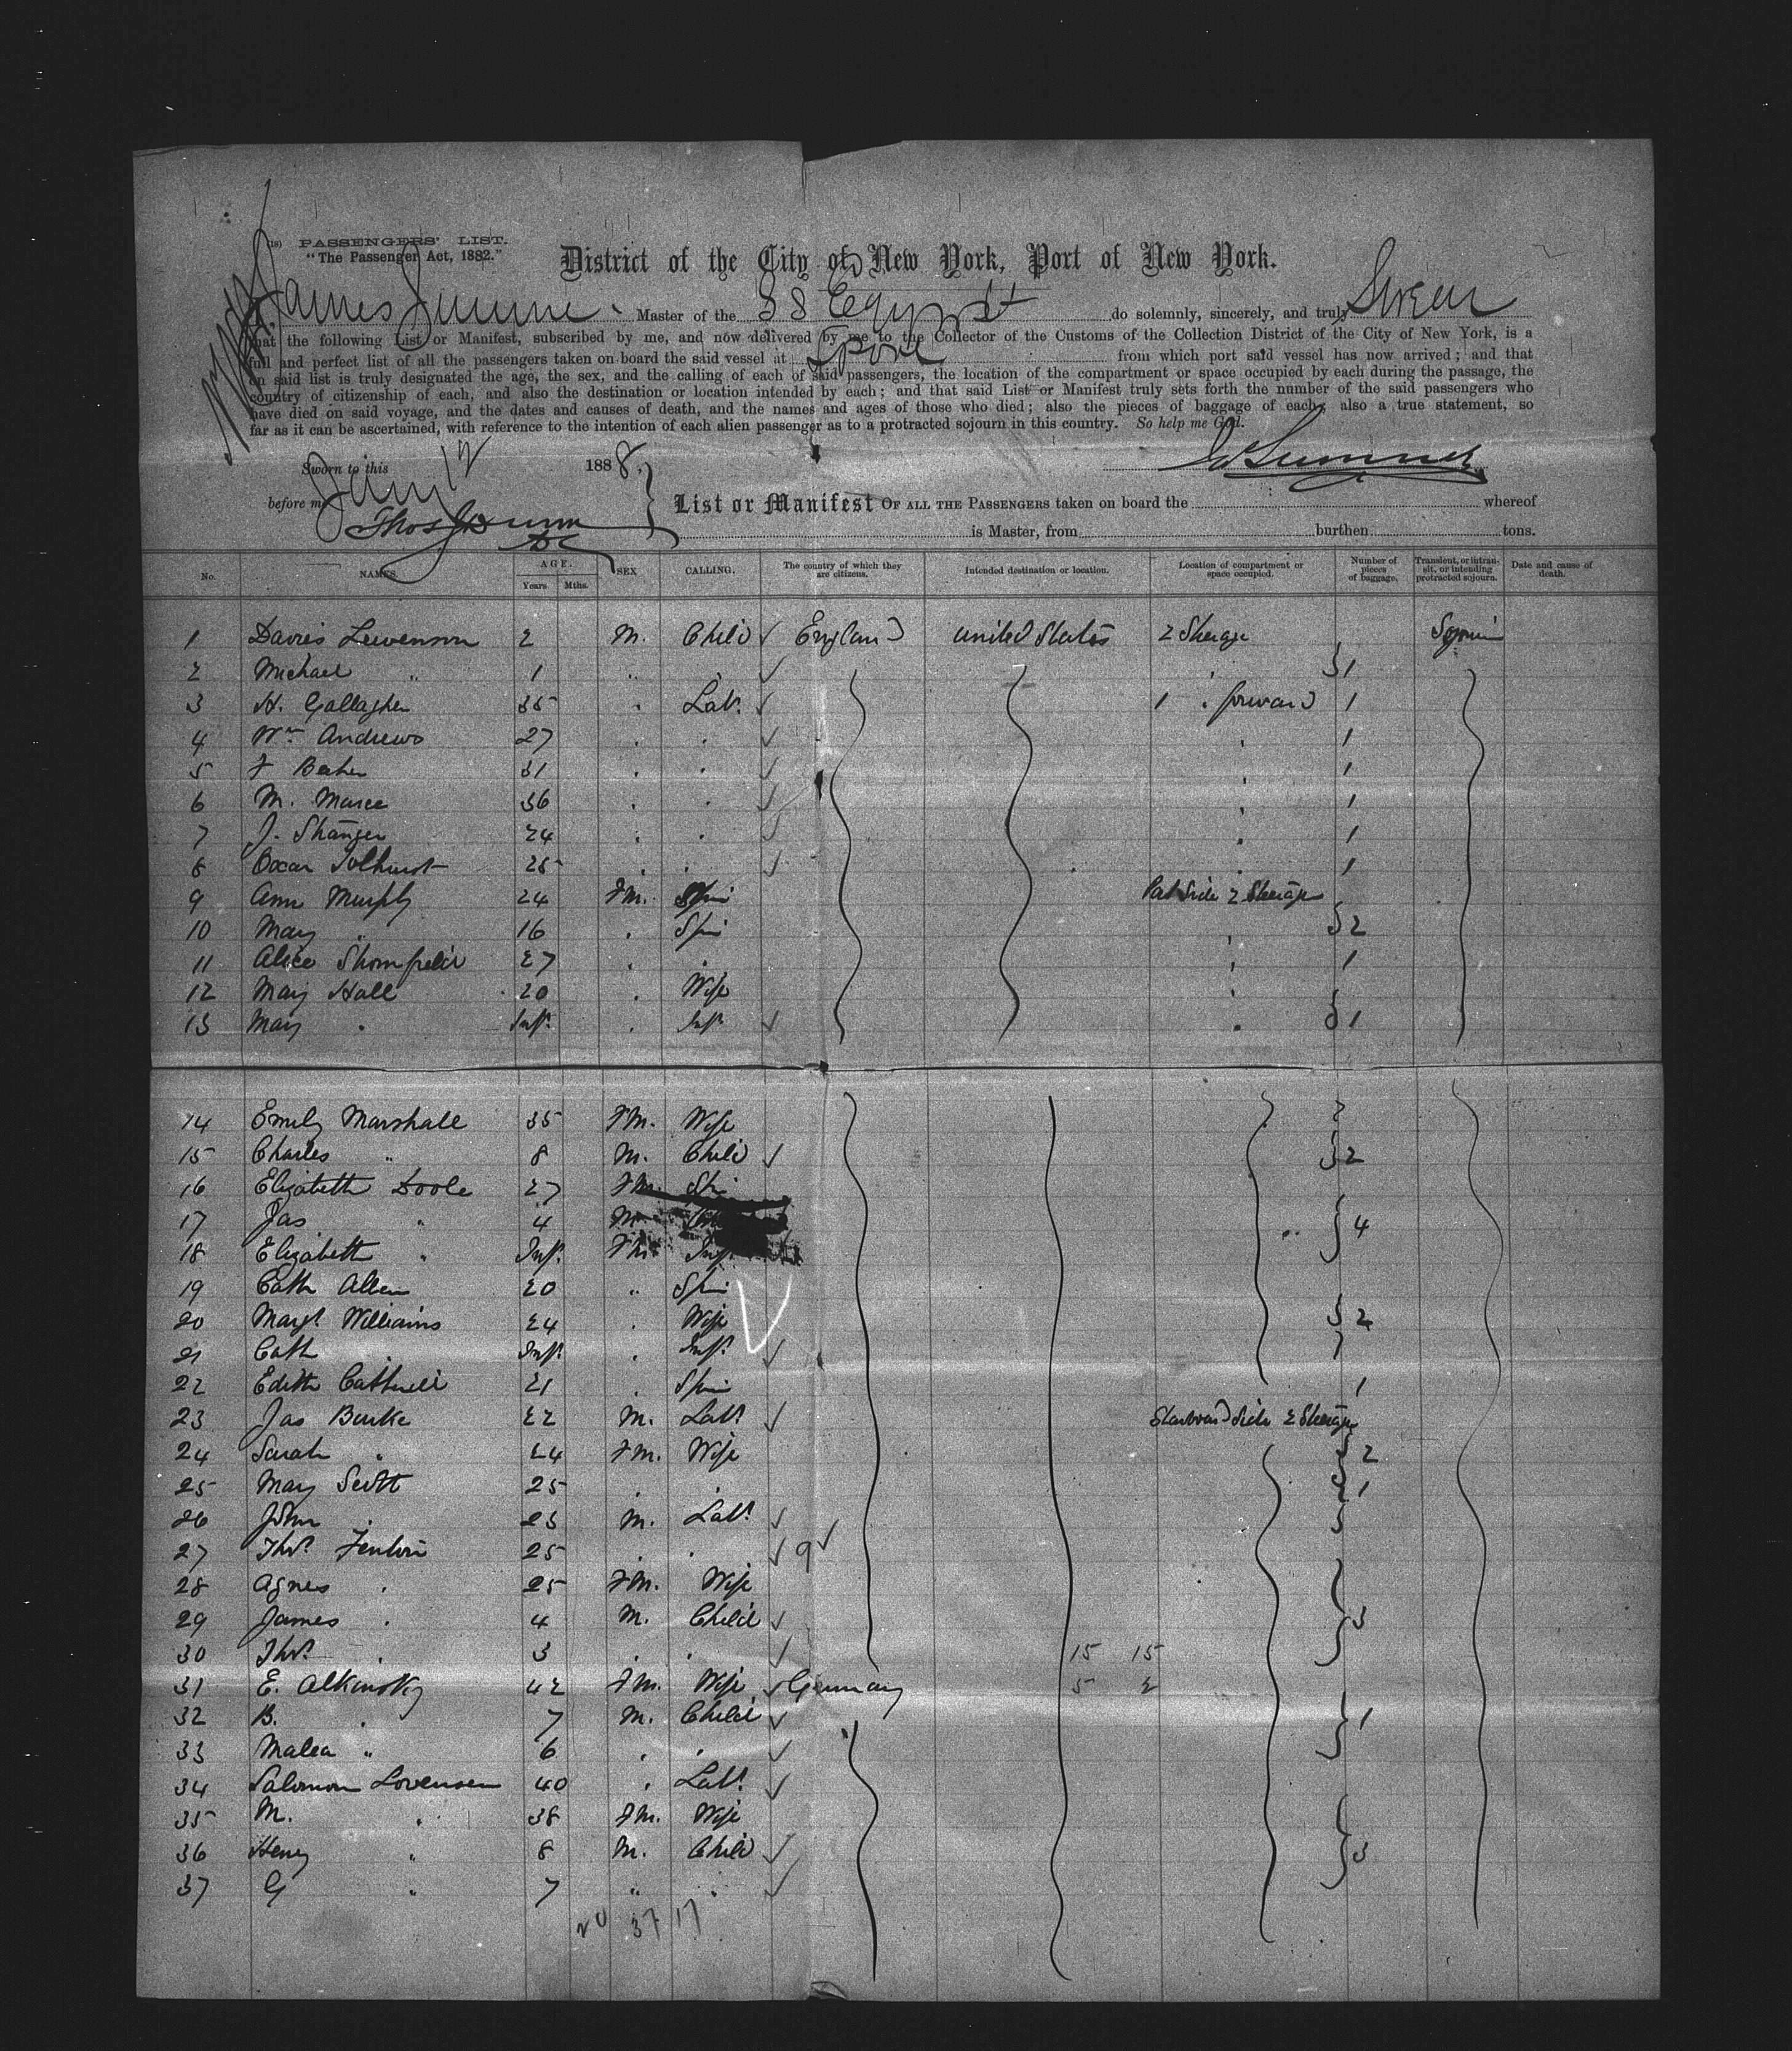 (18) PASSENGERS' LIST.
"The Passenger Act, 1882."
District of the City of New York, Port of New York.
James Sumner Master of the SS Egypt do solemnly, sincerely, and truly Swear
that the following List or Manifest, subscribed by me, and now delivered by me to the Collector of the Customs of the Collection District of the City of New York, is a
full and perfect list of all the passengers taken on board the said vessel at Lpool from which port said vessel has now arrived; and that
on said list is truly designated the age, the sex, and the calling of each of said passengers, the location of the compartment or space occupied by each during the passage, the
country of citizenship of each, and also the destination or location intended by each; and that said List or Manifest truly sets forth the number of the said passengers who
have died on said voyage, and the dates and causes of death, and the names and ages of those who died; also the pieces of baggage of each; also a true statement, so
far as it can be ascertained, with reference to the intention of each alien passenger as to a protracted sojourn in this country. So help me God.
Sworn to this Jany 12 1888. J Sumner
before me
List or Manifest OF ALL THE PASSENGERS taken on board the whereof
Thos J Dunn
is Master, from burthen tons.
No. NAMES. AGE. Years. Mths. SEX CALLING. The country of which they are citizens. Intended destination or location. Location of compartment or space occupied. Number of pieces of baggage. Transient, or in transit, or intending protracted sojourn. Date and cause of death.
1 Davies Lewenson 2 M. Child England United States 2 Steerage Sojourn
2 Michael " 1 " " 1
3 H. Gallagher 35 . Labr. 1 . forward 1
4 Wm Andrews 27 . . . 1
5 F Baker 31 . . . 1
6 M. Maree 36 . . . 1
7 J. Shanger 24 . . . 1
8 Oscar Tolhurst 25 . . . 1
9 Ann Murphy 24 Fm. Spin Port Side 2 Steerage
10 Mary " 16 . Spin 2
11 Alice 27 . . . 1
12 Mary Hall 20 . Wife
13 Mary . Inft. . Inft. . 1
14 Emily Marshall 35 Fm. Wife
15 Charles " 8 M. Child 2
16 Elizabeth Doole 27 Fm. Spin
17 Jas " 4 M. 4
18 Elizabeth " Inft. Fm. Inft.
19 Cath Allen 20 " Spin
20 Margt. Williams 24 . Wife 2
21 Cath . Inft. . Inft.
22 Edith 21 . Spin 1
23 Jas Burke 22 M. Labr. Starboard Side 2 Steerage
24 Sarah " 24 Fm. Wife 2
25 Mary Scott 25 . . 1
26 John . 23 M. Labr.
27 Thos. Fenton 25 . . 9
28 Agnes . 25 Fm. Wife
29 James . 4 M. Child 3
30 Thos. . 3 . . 15 15
31 E. Alkinsky 42 Fm. Wife Germany 5 2
32 B. . 7 M. Child 1
33 Malea " 6 . .
34 Salomon Lovensen 40 . Labr.
35 M. . 38 Fm. Wife
36 Henry " 8 M. Child 3
37 G " 7 " .
20 37 17